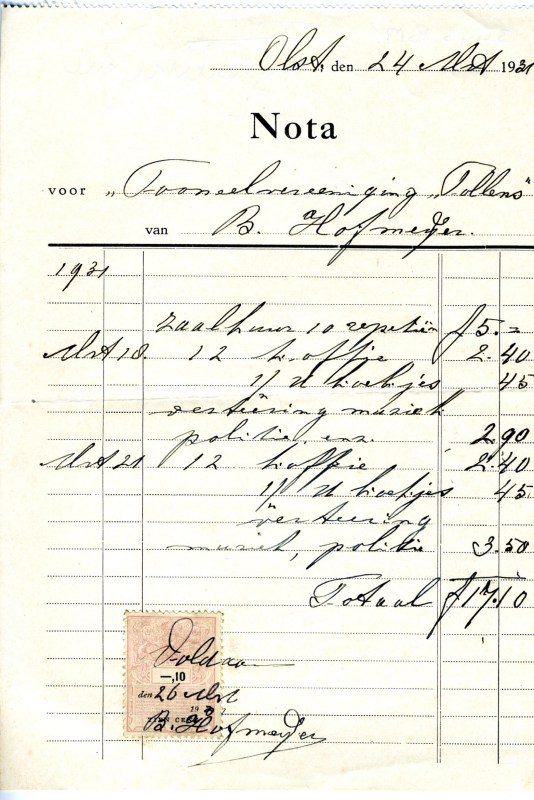 Olst, den 24 Mrt 1931
Nota
voor "Tooneelvereeniging „Tollens"
van B. Hofmeyer.
1931
zaalhuur 10 repetitiën f 5.=
Mrt 18. 12 koffie 2.40
1/2 d koekjes 45
vertering muziek
politie enz. 2.90
Mrt 21 12 koffie 2.40
1/2 d koekjes 45
vertering
muziek, politie 3.50
Totaal f 17.10
Voldaan
—,10
den 26 Mrt
B. Hofmeyer